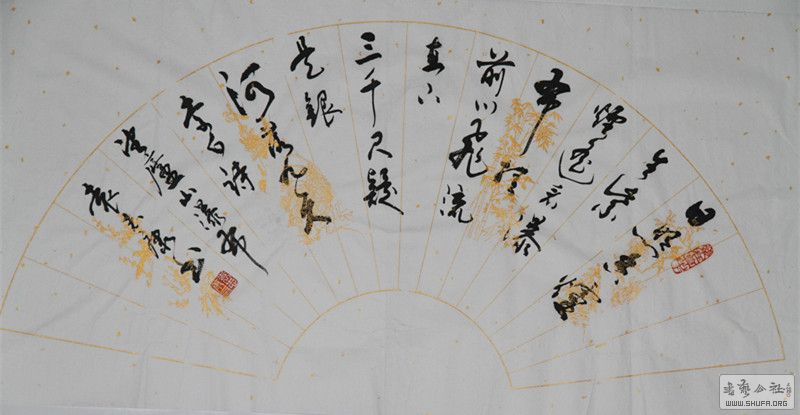 日照香爐
生紫
煙遥看瀑
布掛
前川飛流
直下
三千尺疑
是銀
河落九天
李白詩
望廬山瀑布
书艺公社
WWW.SHUFA.ORG